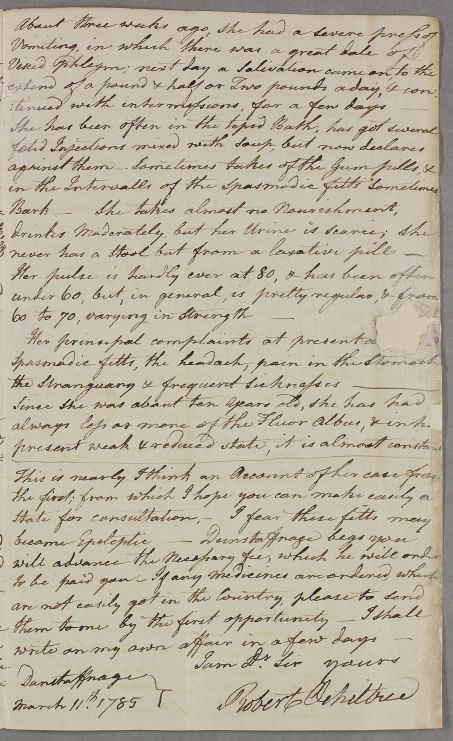 About three weeks ago, she had a severe press of
Vomiting, in which there was a great dale of
Viscd Phlegm; next day a Salivation came on, to the
extend of a pound & half or Two pounds a day, & con:
:tinued with intermissions, for a few days —
She has been often in the tepid Bath, has got several
fœtid Injections mixed with Soap, but now declares
against them — Sometimes takes of the Gum pills, &
in the Intervalls of the Spasmodic fitts Sometimes
Bark — She takes almost no Nourishment,
drinks Moderately, but her Urine is scarce; she
never has a Stool but from a laxative pill —
Her pulse is hardly ever at 80, & has been often
under 60, but, in general, is pretty regular, & from
60 to 70, varying in Strength —
Her principal complaints at present a
Spasmodic fitts, the headach, pain in the Stomach
the Stranguary & frequent Sicknesses —
Since she was about ten years old, she has had
always less or more of the Fluor Albus, & in h
present weak & reduced state, it is almost constant
This is nearly I think an Account of her case from
the first; from which I hope you can make easily a
State for consultation, — I fear these fitts may
become Epileptic — Dunstaffnage begs you
will advance the Necessary fee, which he will order
to be paid you — If any medicines are ordered which
are not easily got in the Country, please to send
them to me by the first opportunity — I shall
write on my own affair in a few days —
I am Dr Sir yours
Dunstaffnage
March 11th. 1785
Robert Ochiltree